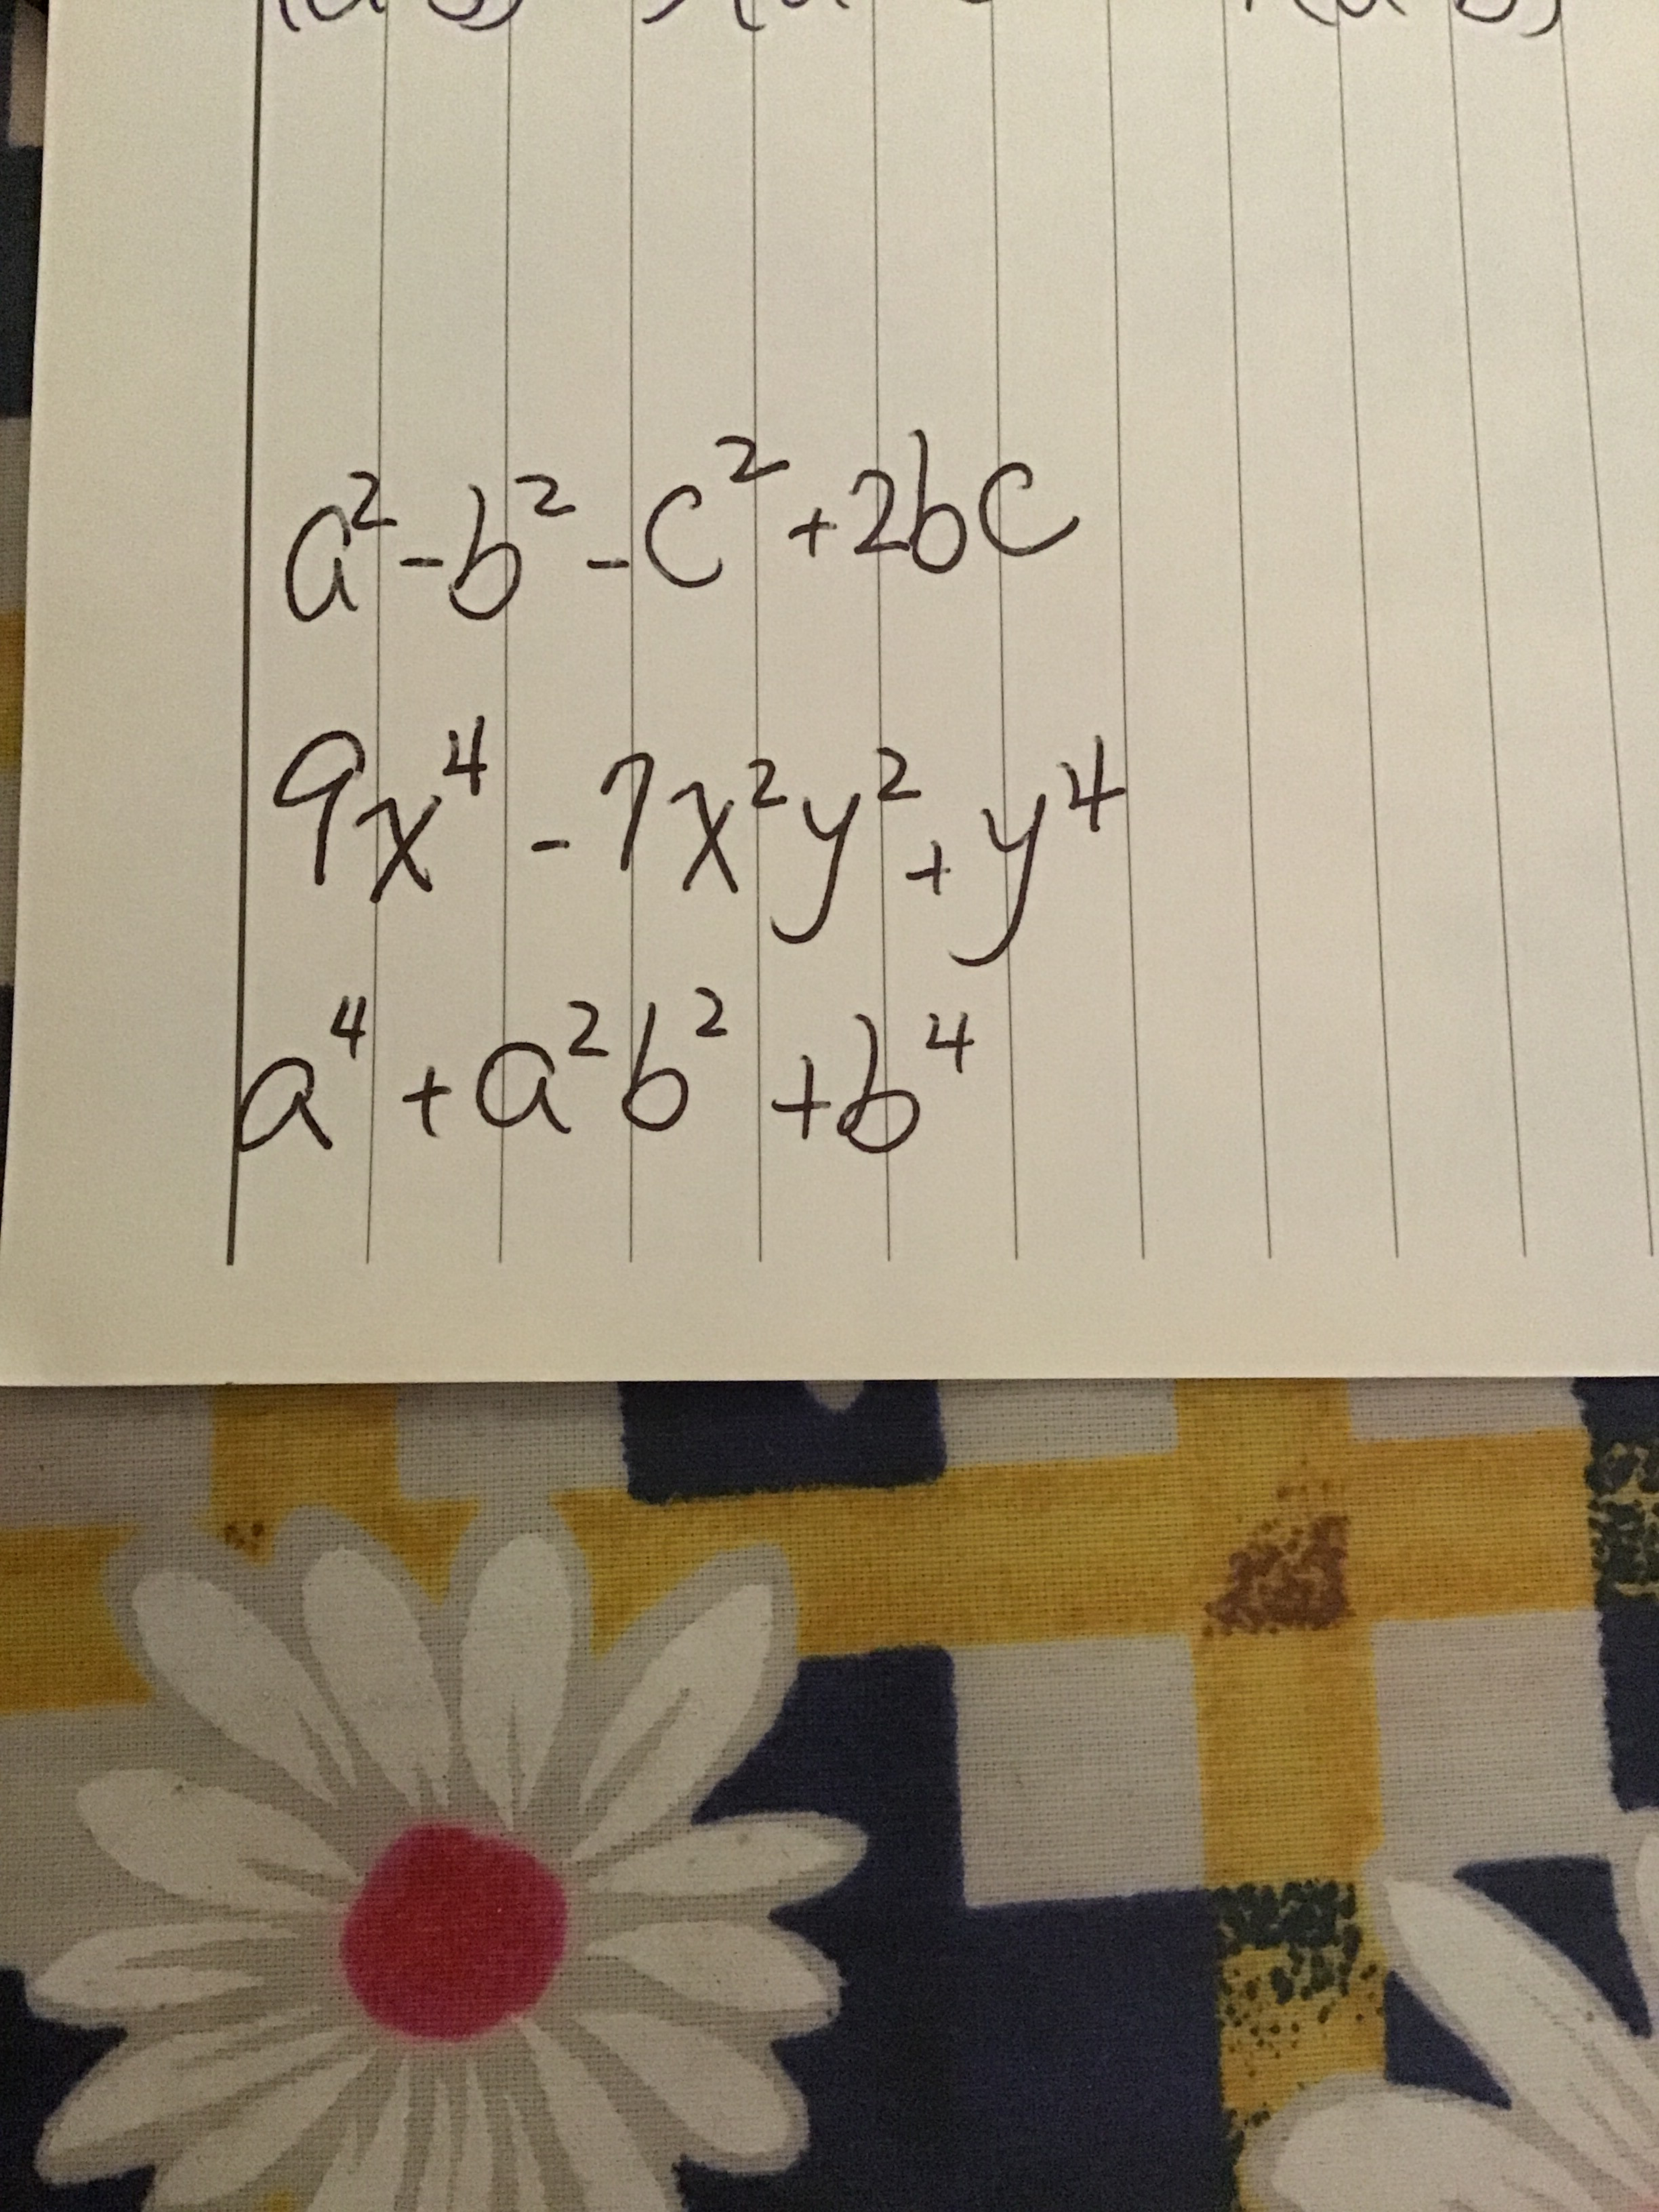 a² - b² - c² + 2bc
9x⁴ - 7x²y² + y⁴
a⁴ + a²b² + b⁴